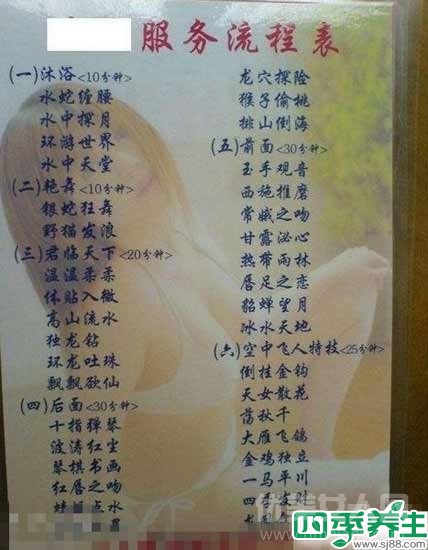 服务流程表
(一)沐浴<10分钟>
水蛇缠腰
水中探月
环游世界
水中天堂
(二)艳舞<10分钟>
银蛇狂舞
野猫发浪
(三)君临天下<20分钟>
温温柔柔
体贴入微
高山流水
独龙钻
环龙吐珠
飘飘欲仙
(四)后面<30分钟>
十指弹琴
波涛红尘
琴棋书画
红唇之吻
龙穴探险
猴子偷桃
排山倒海
(五)前面<30分钟>
玉手观音
西施推磨
常娥之吻
甘露泌心
热带雨林
唇足之恋
貂蝉望月
冰水天地
(六)空中飞人特技<25分钟>
倒挂金钩
天女散花
荡秋千
大雁飞鸽
金鸡独立
一马平川
四季养生
www.sj88.com